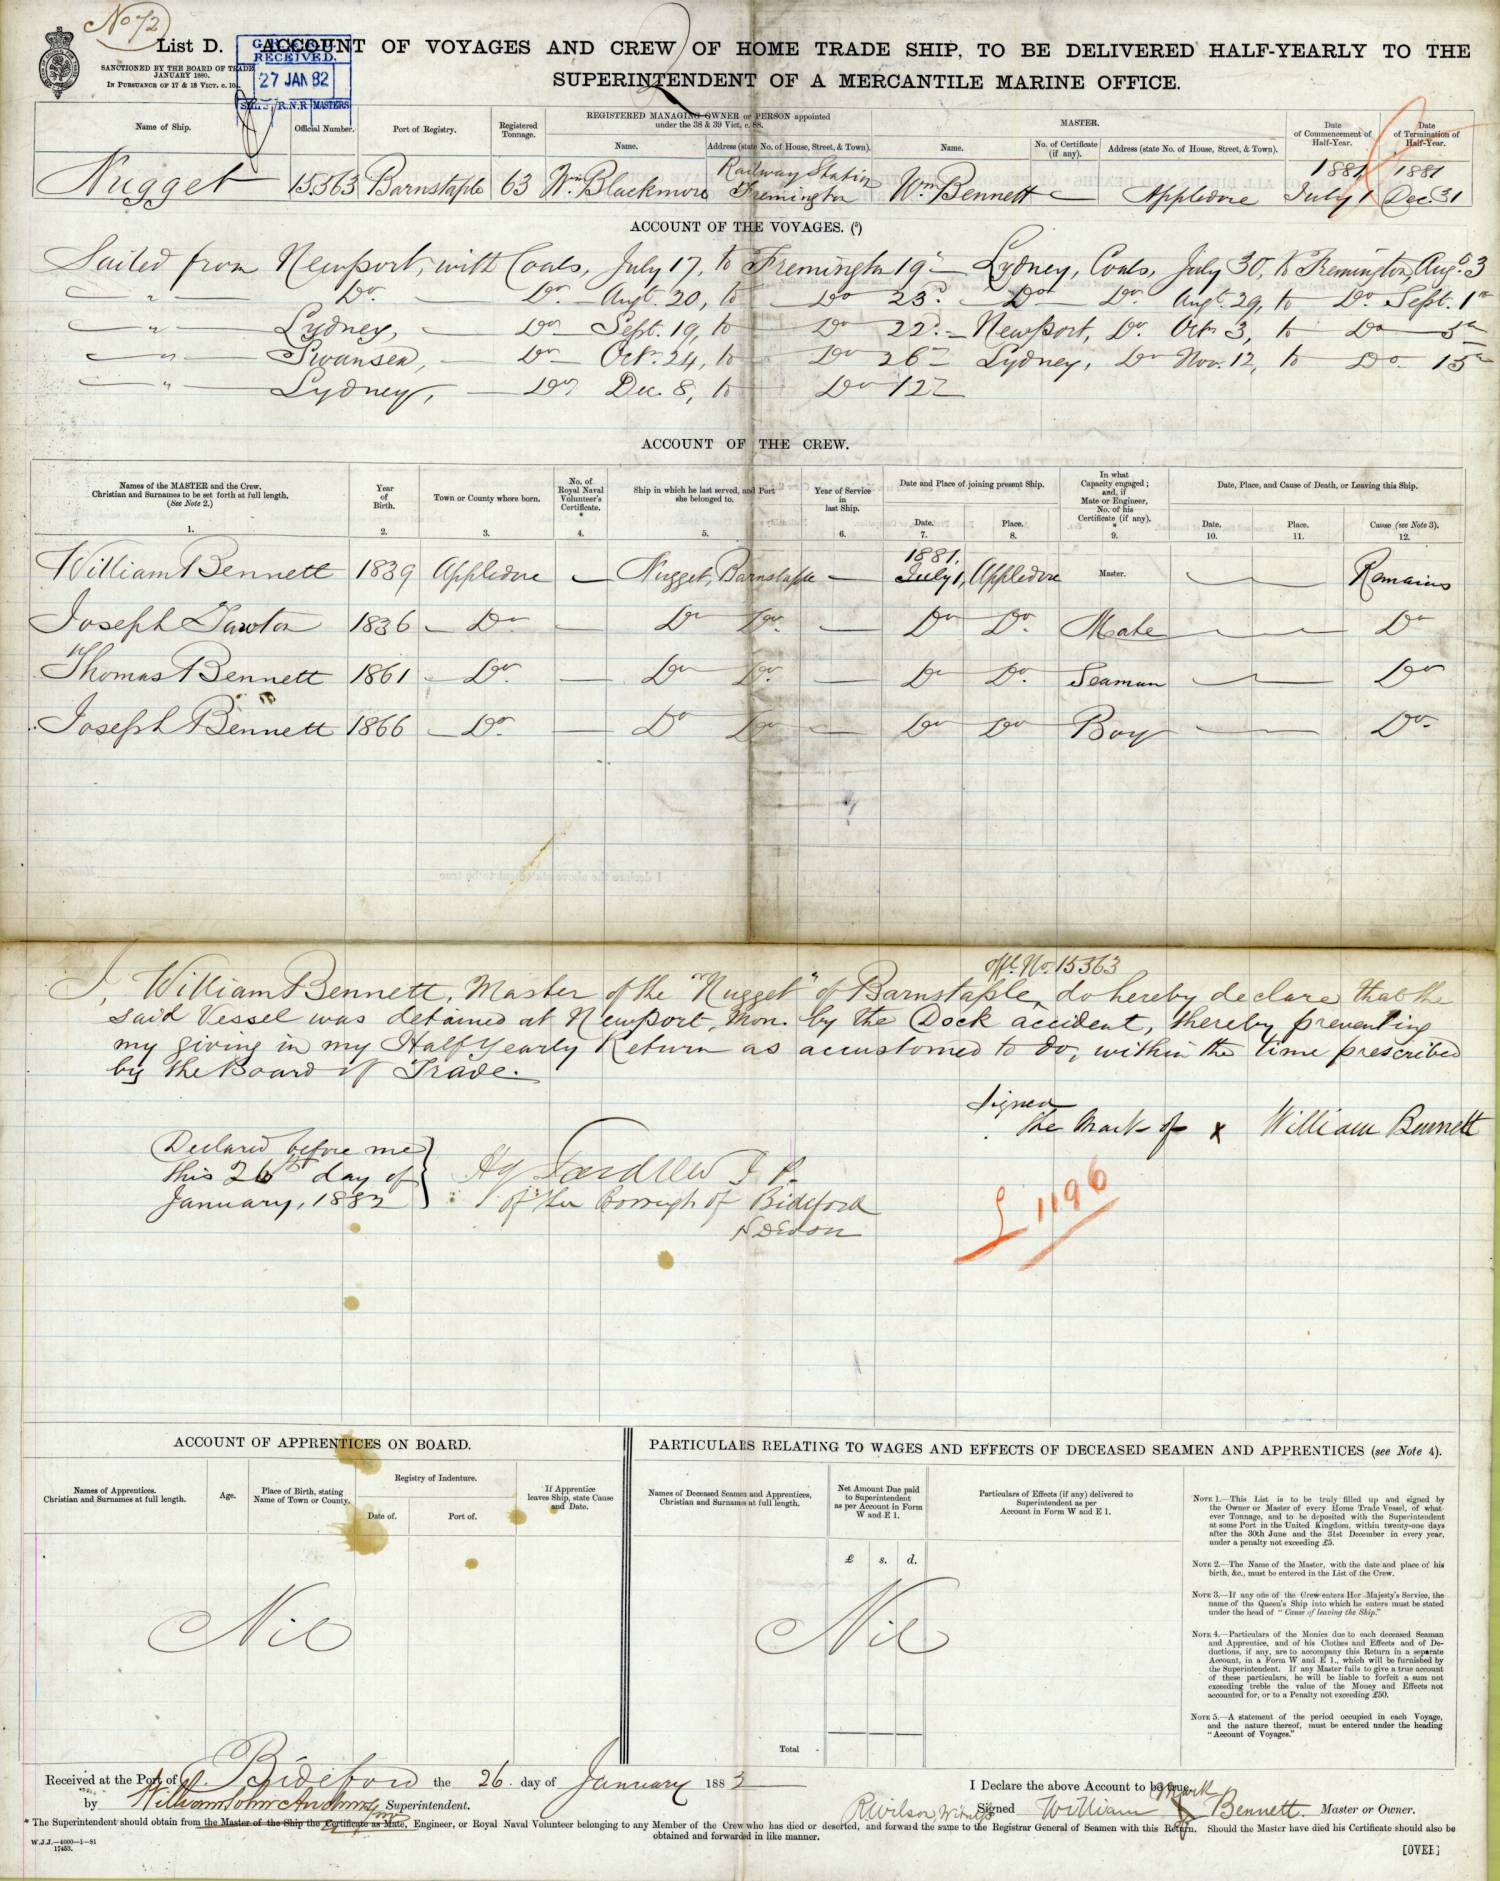 No 72
List D. ACCOUNT OF VOYAGES AND CREW OF HOME TRADE SHIP, TO BE DELIVERED HALF-YEARLY TO THE
SUPERINTENDENT OF A MERCANTILE MARINE OFFICE.
SANCTIONED BY THE BOARD OF TRADE
JANUARY 1880.
IN PURSUANCE OF 17 & 18 VICT. c. 104
RECEIVED.
27 JAN 82
R.N.R MASTERS
Name of Ship. Official Number. Port of Registry. Registered Tonnage. REGISTERED MANAGING OWNER or PERSON appointed under the 38 & 39 Vict. c. 88. MASTER. Date of Commencement of Half-Year. Date of Termination of Half-Year.
Name. Address (state No. of House, Street, & Town). Name. No. of Certificate (if any). Address (state No. of House, Street, & Town).
Nugget 15363 Barnstaple 63 Wm. Blackmore Railway Station Fremington Wm Bennett Appledore 1881 July 1 1881 Dec. 31
ACCOUNT OF THE VOYAGES. (5)
Sailed from Newport, with Coals, July 17, to Fremington 19th Lydney, Coals, July 30, to Fremington, Aug. 3
" Do. Do. Augt. 20, to Do 23d. Do Do. Augt. 29, to Do. Sept. 1st
" Lydney, Do Sept. 19, to Do 22d. Newport, Do. Octr 3, to Do 5th
" Swansea, Do Octr. 24, to Do 26th Lydney, Do Nov. 12, to Do. 15th
" Lydney, Do. Dec. 8, to Do 12th
ACCOUNT OF THE CREW.
Names of the MASTER and the Crew. Christian and Surnames to be set forth at full length. (See Note 2.) Year of Birth. Town or County where born. No. of Royal Naval Volunteer's Certificate. * Ship in which he last served, and Port she belonged to. Year of Service in last Ship. Date and Place of joining present Ship. In what Capacity engaged; and, if Mate or Engineer, No. of his Certificate (if any). * Date, Place, and Cause of Death, or Leaving this Ship.
Date. Place. Date. Place. Cause (see Note 3).
1. 2. 3. 4. 5. 6. 7. 8. 9. 10. 11. 12.
William Bennett 1839 Appledore Nugget, Barnstaple 1881, July 1, Appledore Master. Remains
Joseph 1836 Do Do Do. Do Do. Mate Do
Thomas Bennett 1861 Do. Do Do. Do Do. Seaman Do
Joseph Bennett 1866 Do. Do Do Do Do Boy Do.
offl. No. 15363
I, William Bennett, Master of the "Nugget" of Barnstaple, do hereby declare that the
said Vessel was detained at Newport, Mon. by the Dock accident, thereby preventing
my giving in my Half Yearly Return as accustomed to do, within the time prescribed
by the Board of Trade.
Signed
the Mark of x William Bennett
Declared before me
this 26th day of
January, 1882
J. P.
of the Borough of Bideford
N Devon
£ 1196
ACCOUNT OF APPRENTICES ON BOARD.
Names of Apprentices. Christian and Surnames at full length. Age. Place of Birth, stating Name of Town or County. Registry of Indenture. If Apprentice leaves Ship, state Cause and Date.
Date of. Port of.
Nil
PARTICULARS RELATING TO WAGES AND EFFECTS OF DECEASED SEAMEN AND APPRENTICES (see Note 4).
Names of Deceased Seamen and Apprentices, Christian and Surnames at full length. Net Amount Due paid to Superintendent as per Account in Form W and E 1. Particulars of Effects (if any) delivered to Superintendent as per Account in Form W and E 1.
£ s. d.
Nil
Total
NOTE 1.—This List is to be truly filled up and signed by
the Owner or Master of every Home Trade Vessel, of what-
ever Tonnage, and to be deposited with the Superintendent
at some Port in the United Kingdom, within twenty-one days
after the 30th June and the 31st December in every year,
under a penalty not exceeding £5.
NOTE 2.—The Name of the Master, with the date and place of his
birth, &c., must be entered in the List of the Crew.
NOTE 3.—If any one of the Crew enters Her Majesty's Service, the
name of the Queen's Ship into which he enters must be stated
under the head of "Cause of leaving the Ship."
NOTE 4.—Particulars of the Monies due to each deceased Seaman
and Apprentice, and of his Clothes and Effects and of De-
ductions, if any, are to accompany this Return in a separate
Account, in a Form W and E 1., which will be furnished by
the Superintendent. If any Master fails to give a true account
of these particulars, he will be liable to forfeit a sum not
exceeding treble the value of the Money and Effects not
accounted for, or to a Penalty not exceeding £50.
NOTE 5.—A statement of the period occupied in each Voyage,
and the nature thereof, must be entered under the heading
"Account of Voyages."
Received at the Port of Bideford the 26 day of January 1882
by William John Superintendent.
I Declare the above Account to be true,
Signed William Mark X Bennett. Master or Owner.
RWilson Witness
* The Superintendent should obtain from the Master of the Ship the Certificate as Mate, Engineer, or Royal Naval Volunteer belonging to any Member of the Crew who has died or deserted, and forward the same to the Registrar General of Seamen with this Return. Should the Master have died his Certificate should also be
obtained and forwarded in like manner.
W.J.J.—4000—1—81
17453.
[OVER]